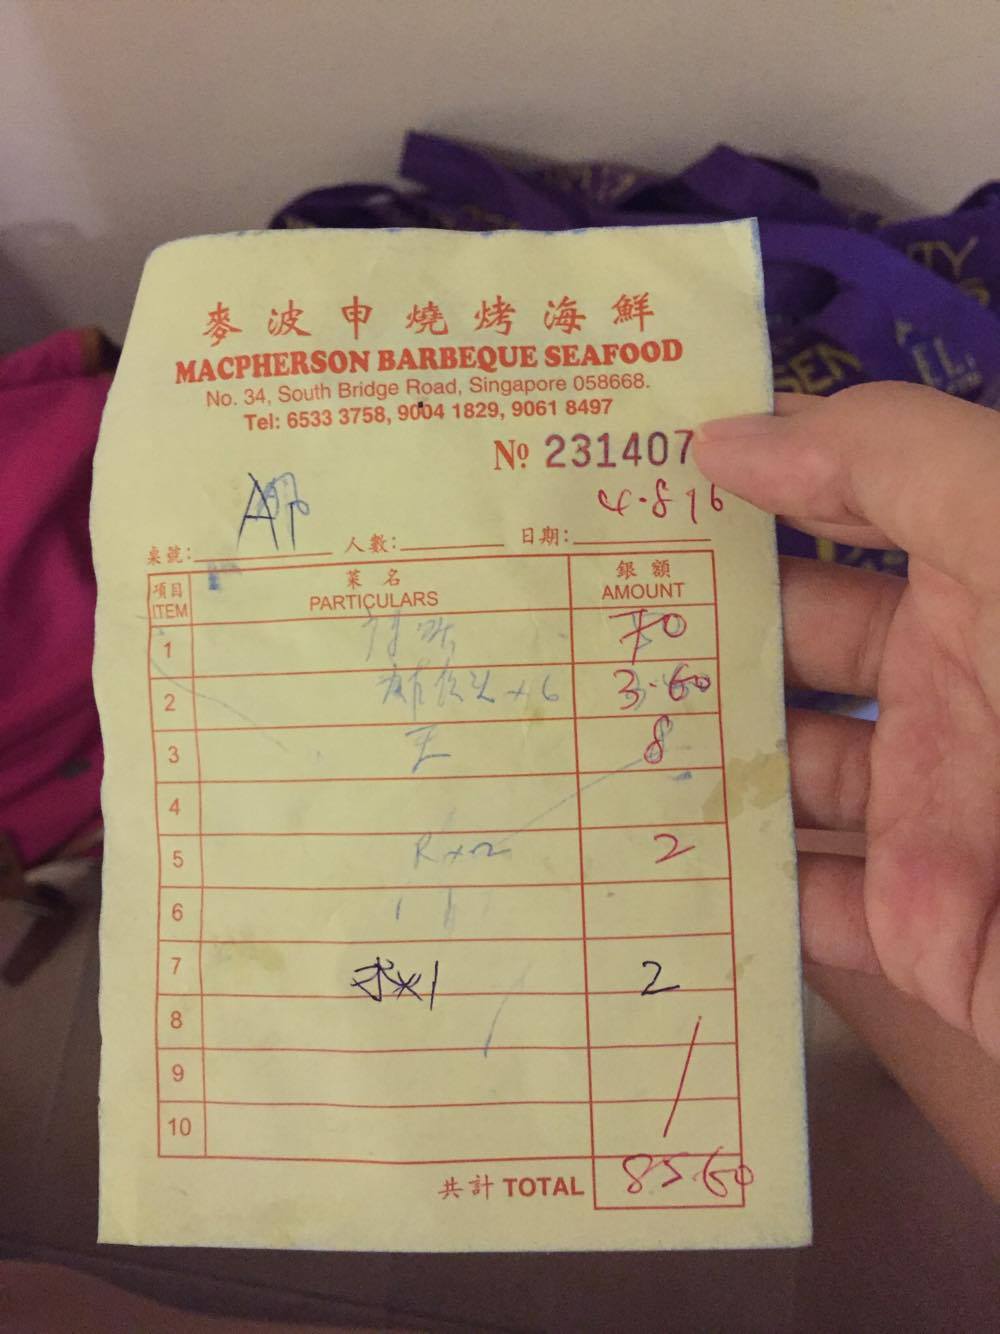 麥波申燒烤海鮮
MACPHERSON BARBEQUE SEAFOOD
No. 34, South Bridge Road, Singapore 058668.
Tel: 6533 3758, 9004 1829, 9061 8497
Nº 231407
4.8 16
桌號: 人數: 日期:
項目 ITEM 菜名 PARTICULARS 銀額 AMOUNT
1 70
2 x6 3.60
3 8
4
5 Rx2 2
6
7 x1 2
8
9
10
共計 TOTAL 85.60